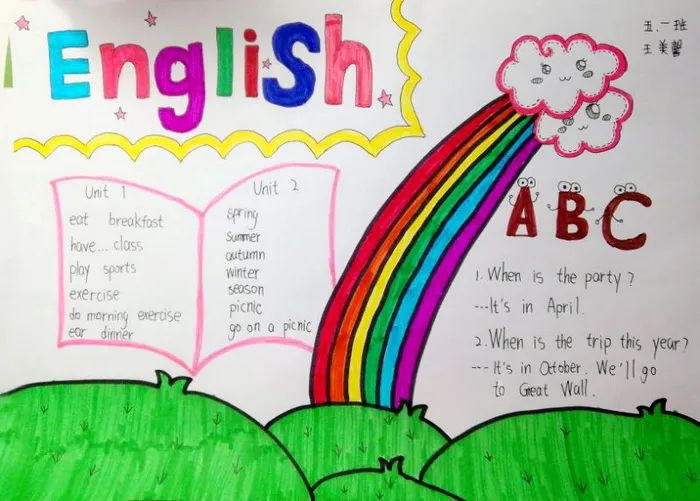 English
五.一班
王美馨
Unit 1
eat breakfast
have... class
play sports
exercise
do morning exercise
ear dinner
Unit 2
spring
summer
autumn
winter
season
picnic
go on a picnic
ABC
1. When is the party?
---It's in April.
2. When is the trip this year?
--- It's in October. We'll go
to Great Wall.